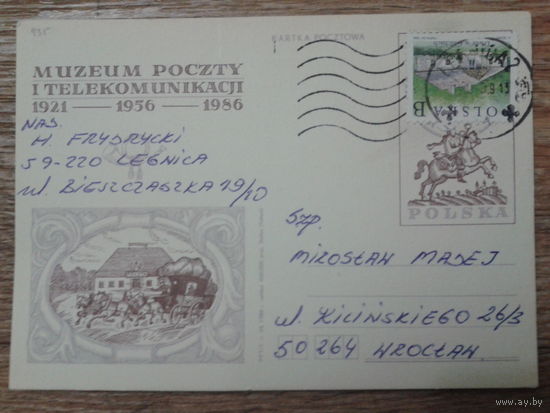 935
KARTKA POCZTOWA
MUZEUM POCZTY
I TELEKOMUNIKACJI
1921 — 1956 — 1986
NAD.
H. FRYDRYCKI
59-220 LEGNICA
ul. BIESZCZADZKA 19/10
B POLSKA
POLSKA
Szp.
MIROSŁAW MADEJ
ul. KILIŃSKIEGO 26/3
50 264 WROCŁAW
www.ay.by